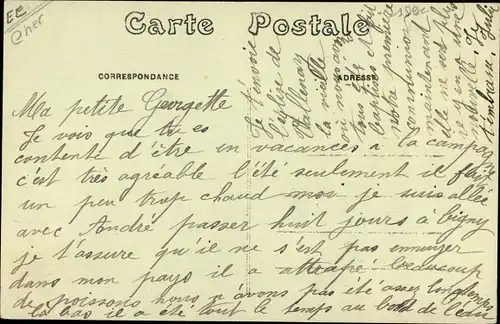 EE
Cher
Carte Postale
CORRESPONDANCE
ADRESSE
Ma petite Georgette
Je vois que tu es
contente d'être en vacances a la campag
c'est très agreable l'été seulement il fait
un peu trop chaud moi je suis allée
avec André passer huit jours a Vigny
je t'assure qu'il ne s'est pas ennuyer
dans mon pays il a attrapé beaucoup
de poissons nous n avons pas été assez longtemps
la bas il a été tout le temps au bord de l'eau
Je t'envoie
l'église de
Vallenay
la vielle
où nous avons
tous été
baptisés et fait
notre première
communion
maintenant
elle ne sert plus
il y en a une
nouvelle